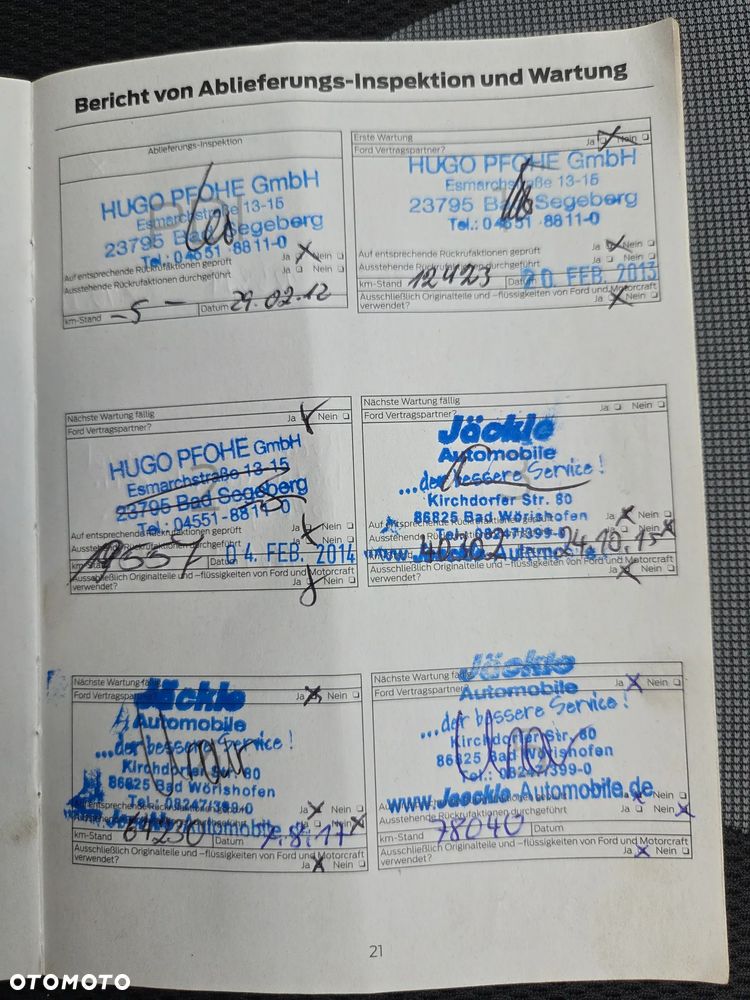 Bericht von Ablieferungs-Inspektion und Wartung
Ablieferungs-Inspektion
HUGO PFOHE GmbH
Esmarchstraße 13-15
23795 Bad Segeberg
Tel.: 04551-8811-0
Auf entsprechende Rückrufaktionen geprüft Ja Nein
Ausstehende Rückrufaktionen durchgeführt Ja Nein
km-Stand -5- Datum 29.02.12
Erste Wartung Ja Nein
Ford Vertragspartner?
HUGO PFOHE GmbH
Esmarchstraße 13-15
23795 Bad Segeberg
Tel.: 04551-8811-0
Auf entsprechende Rückrufaktionen geprüft Ja Nein
Ausstehende Rückrufaktionen durchgeführt Ja Nein
km-Stand 12423 Datum 20. FEB. 2013
Ausschließlich Originalteile und –flüssigkeiten von Ford und Motorcraft
verwendet? Ja Nein
Nächste Wartung fällig Ja Nein
Ford Vertragspartner?
HUGO PFOHE GmbH
Esmarchstraße 13-15
23795 Bad Segeberg
Tel.: 04551-8811-0
Auf entsprechende Rückrufaktionen geprüft Ja Nein
Ausstehende Rückrufaktionen durchgeführt Ja Nein
km-Stand Datum 04. FEB. 2014
Ausschließlich Originalteile und –flüssigkeiten von Ford und Motorcraft
verwendet? Ja Nein
Nächste Wartung fällig Ja Nein
Ford Vertragspartner?
Jäckle
Automobile
...der bessere Service!
Kirchdorfer Str. 80
86825 Bad Wörishofen
Tel.: 08247/399-0
Auf entsprechende Rückrufaktionen geprüft Ja Nein
Ausstehende Rückrufaktionen durchgeführt Ja Nein
www.Jaeckle-Automobile.de
km-Stand Datum 24.10.15
Ausschließlich Originalteile und –flüssigkeiten von Ford und Motorcraft
verwendet? Ja Nein
Nächste Wartung fällig Ja Nein
Ford Vertragspartner?
Jäckle
Automobile
...der bessere Service!
Kirchdorfer Str. 80
86825 Bad Wörishofen
Tel.: 08247/399-0
Auf entsprechende Rückrufaktionen geprüft Ja Nein
Ausstehende Rückrufaktionen durchgeführt Ja Nein
www.Jaeckle-Automobile.de
km-Stand 64230 Datum 7.8.17
Ausschließlich Originalteile und –flüssigkeiten von Ford und Motorcraft
verwendet? Ja Nein
Nächste Wartung fällig Ja Nein
Ford Vertragspartner?
Jäckle
Automobile
...der bessere Service!
Kirchdorfer Str. 80
86825 Bad Wörishofen
Tel.: 08247/399-0
www.Jaeckle-Automobile.de
Auf entsprechende Rückrufaktionen geprüft Ja Nein
Ausstehende Rückrufaktionen durchgeführt Ja Nein
km-Stand 78040 Datum
Ausschließlich Originalteile und –flüssigkeiten von Ford und Motorcraft
verwendet? Ja Nein
21
OTOMOTO